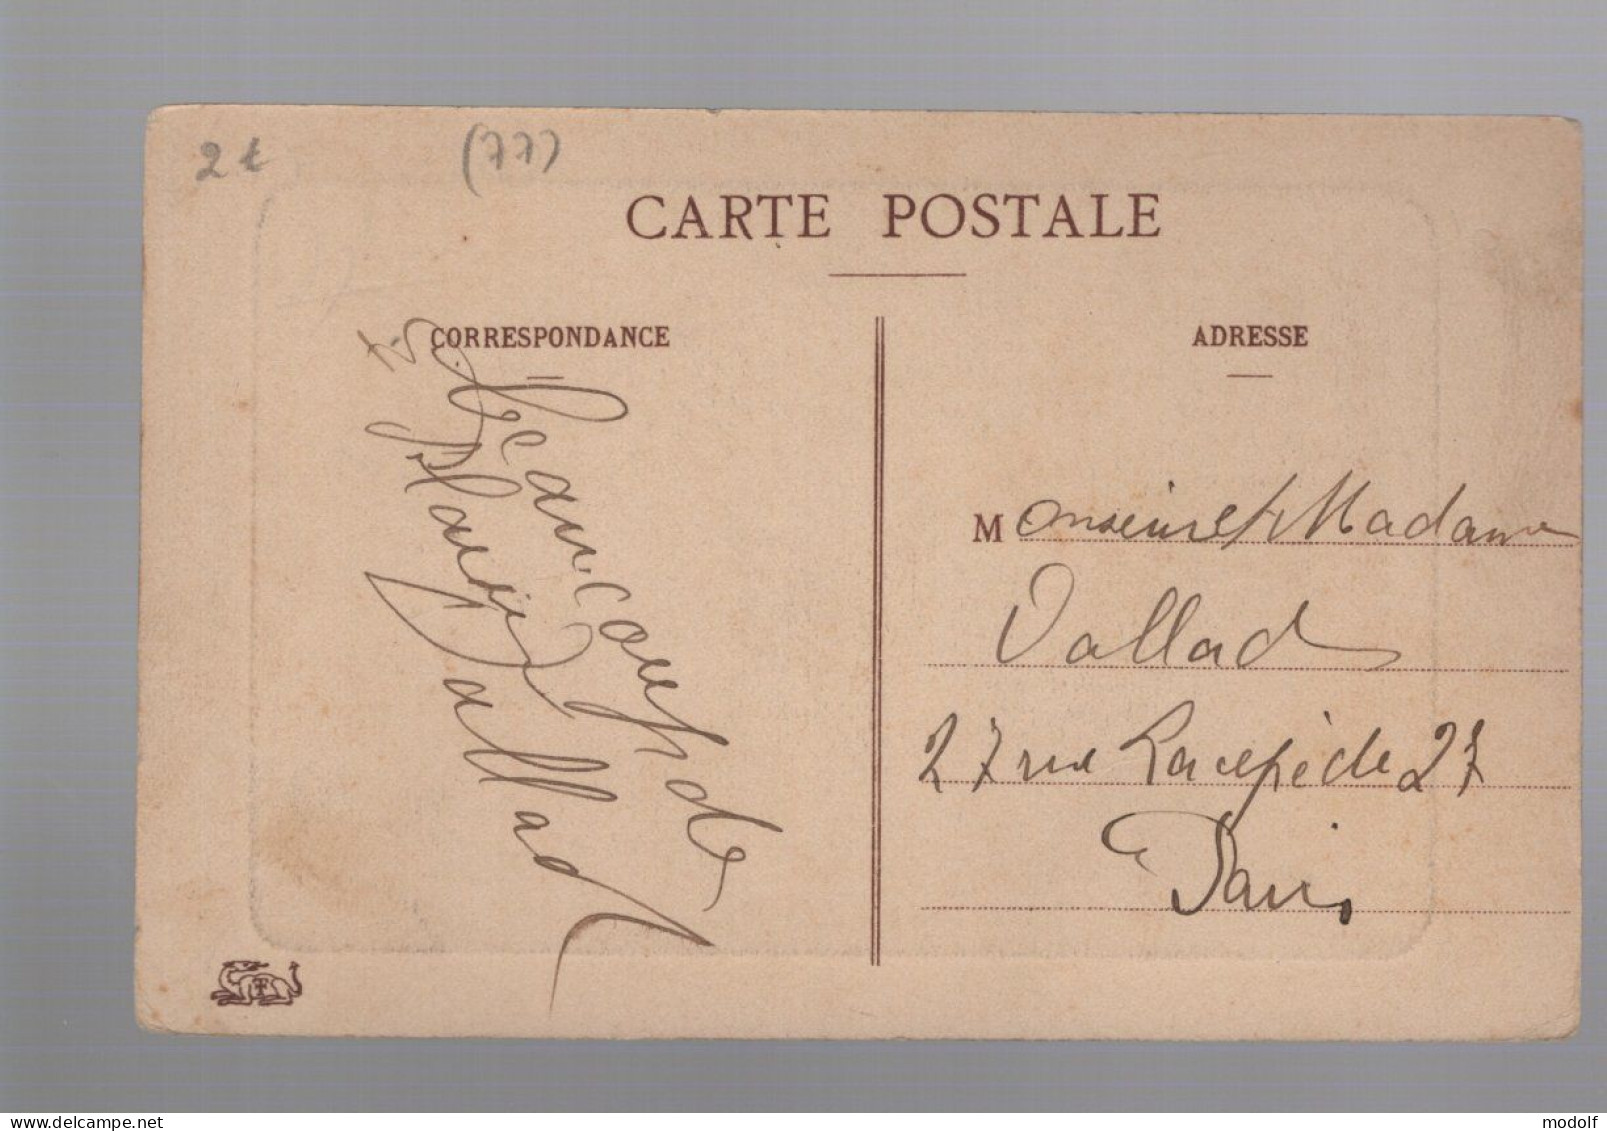 2 €
(77)
CARTE POSTALE
CORRESPONDANCE
ADRESSE
Beaucoup de
Vallad
Monsieur et Madame
Vallad
27 rue Lacepède 27
Paris
delcampe.net
modolf